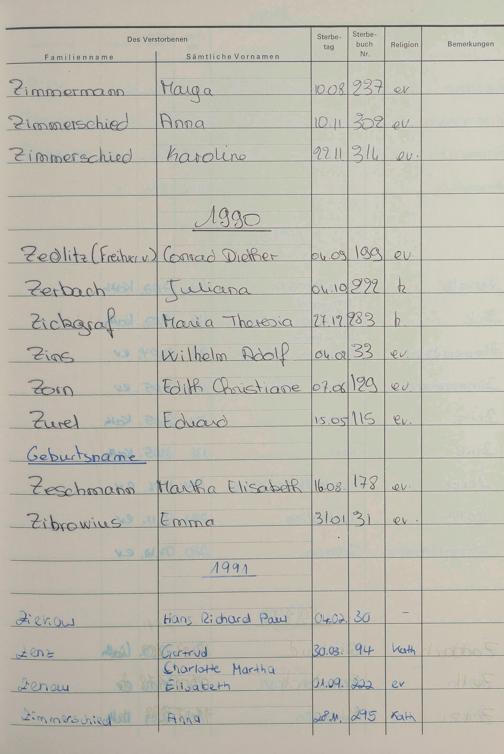 Des Verstorbenen Sterbe- Sterbe- Religion Bemerkungen
tag buch
Familienname Sämtliche Vornamen Nr.
Zimmermann Marga 10.08 237 ev
Zimmerschied Anna 10.11 302 ev.
Zimmerschied Karoline 22.11 314 ev.
1990
Zedlitz (Freiherr v.) Conrad Diether 04.09 199 ev
Zerbach Juliana 04.10 222 k
Zickgraf Maria Theresia 27.12 283 k
Zins Wilhelm Adolf 04.02 33 ev.
Zorn Edith Christiane 07.06 129 ev
Zurel Eduard 15.05 115 ev.
Geburtsname
Zeschmann Martha Elisabeth 16.08. 178 ev.
Zibrowius Emma 31.01 31 ev.
1991
Hans Richard Paul 04.02. 30 -
Zenz Gertrud 30.03. 94 Kath
Charlotte Martha
Zenow Elisabeth 01.09. 222 ev
Zimmerschied Anna 28.11. 295 Kath